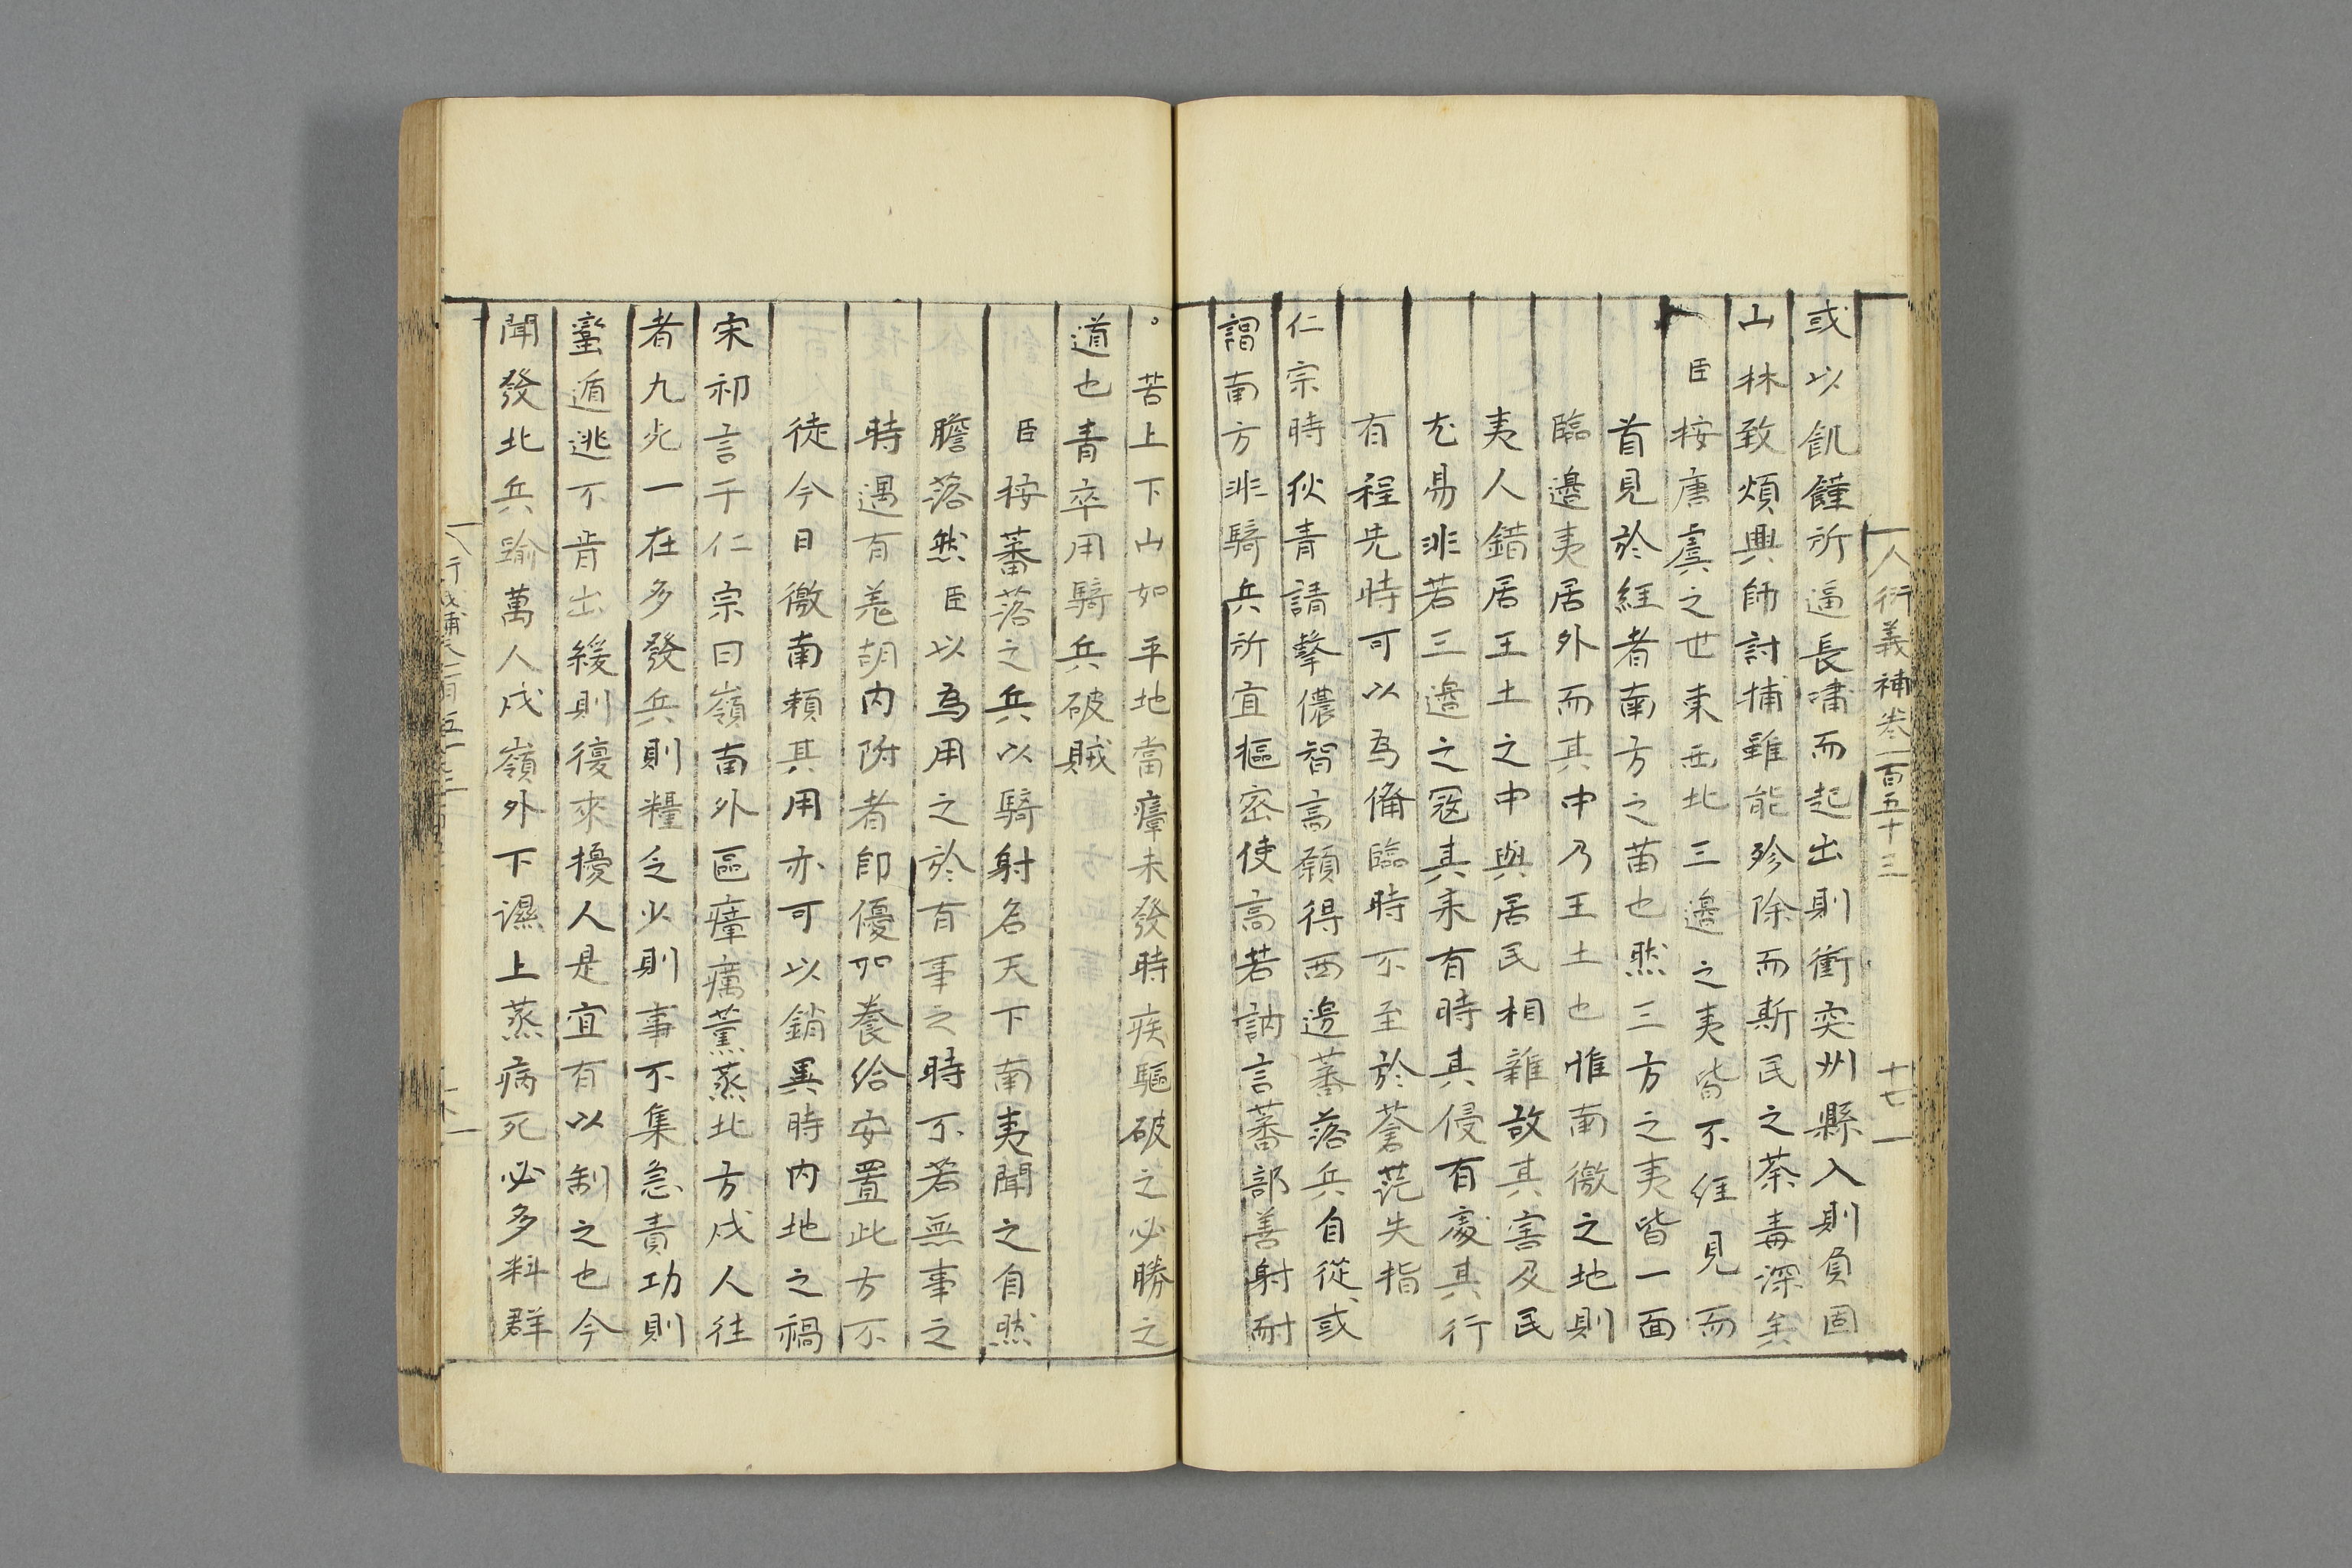 衍義補卷一百五十三 十七
或以飢饉所逼長嘯而起出則衝突州縣入則負固
山林致煩興師討捕雖能殄除而斯民之荼毒深矣
臣按唐虞之世東西北三邊之夷皆不經見而
首見於經者南方之苗也然三方之夷皆一面
臨邊夷居外而其中乃王土也惟南徼之地則
夷人錯居王土之中與居民相雜故其害及民
尤易非若三邊之冦其来有時其侵有處其行
有程先時可以為俻臨時不至於蒼茫失指
仁宗時狄青請擊儂智高願得西邊蕃落兵自從或
謂南方非騎兵所宜樞密使高若訥言蕃部善射耐
苦上下山如平地當瘴未發時疾驅破之必勝之
道也青卒用騎兵破賊
臣按蕃落之兵以騎射名天下南夷聞之自然
膽落然臣以為用之於有事之時不若無事之
時遇有羌胡内附者即優加養給安置此方不
徒今日徼南頼其用亦可以銷異時内地之禍
宋初言于仁宗曰嶺南外區瘴癘薰蒸北方戍人往
者九死一在多發兵則糧乏少則事不集急責功則
蠻遁逃不肯出緩則復來擾人是宜有以制之也今
聞發北兵踰萬人戍嶺外下濕上蒸病死必多料群